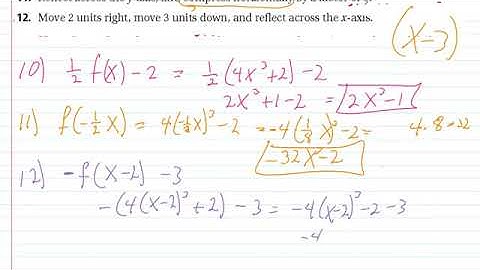 12. Move 2 units right, move 3 units down, and reflect across the x-axis.
(x-3)
10) 1/2 f(x) - 2 = 1/2 (4x³+2) - 2
2x³+1-2 = 2x³-1
11) f(-1/2 x) = 4(-1/2 x)³ - 2 = -4(1/8 x)³ - 2 =
4.8=32
-32x³-2
12) -f(x-2) - 3
-(4(x-2)³+2) - 3 = -4(x-2)³-2-3
-4